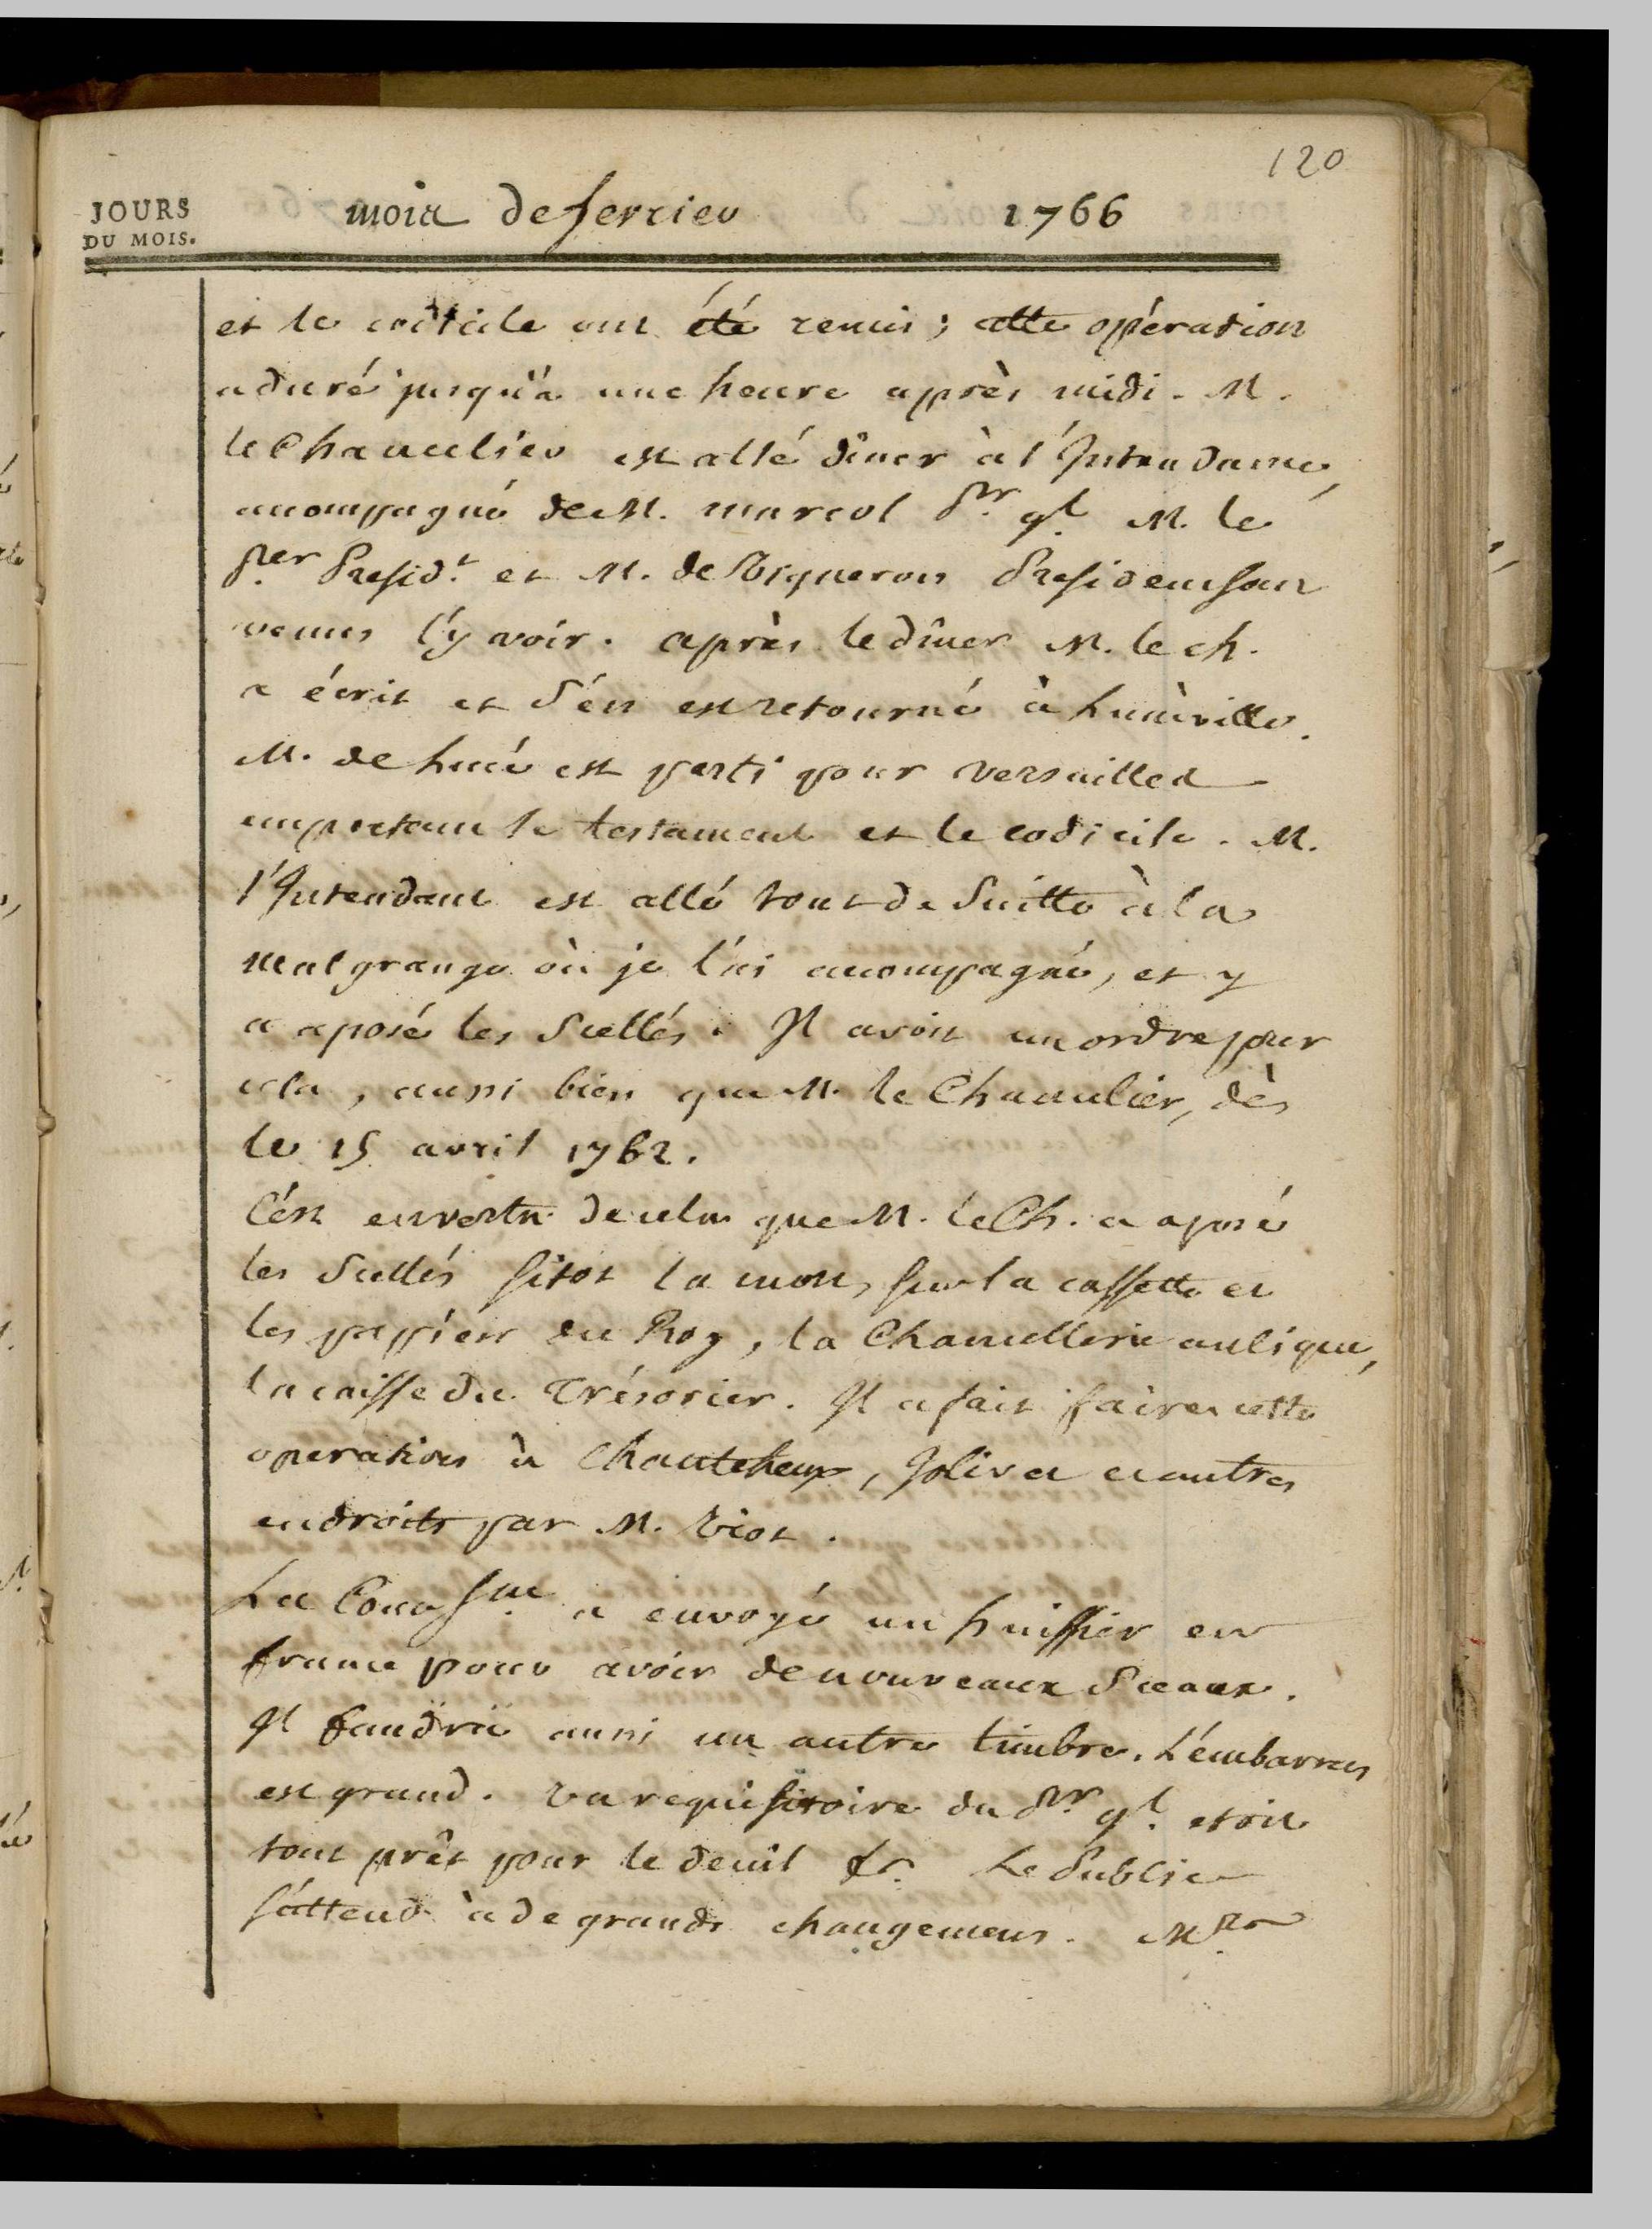 120
JOURS
DU MOIS.
mois de fevrier 1766
et le codicile ont été remis ; cette opération
a duré jusqu'à une heure après midi. M.
le Chancelier est allé dîner à l'Intendance,
acompagné de M. marcol Pr. gl. M. le
Per. Presidt. et M. de Vigneron President sont
venus l'y voir. après le dîner M. le ch.
a écrit et s'én est retourné à Lunéville.
M. de Lucé est parti pour versailles
emportant le testament et le codicile. M.
l'Intendant est allé tout de Suitte à la
Malgrange où je l'ai acompagné, et y
a aposé les Scellés. Il avoit un ordre pour
cela, aussi bien que M. le Chancelier, dès
le 15 avril 1762.
C'ést en vertu de cela que M. le Ch. a aposé
les Scellés sitot la mort, sur la cassette et
les pappiers du Roy, la Chancellerie aulique,
la caisse du Trésorier. Il a fait faire cette
operation à Chanteheux, Jolivet et autres
endroits par M. Riot.
La Cour Sne. a envoyé un huissier en
france pour avoir de nouveaux Sceaux.
Il faudra aussi un autre timbre. L'émbarras
est grand. Un requisitoire du Pr. gl. etoit
tout prêt pour le deuil &c. Le Public
s'áttend à de grands changemens. Mrs.